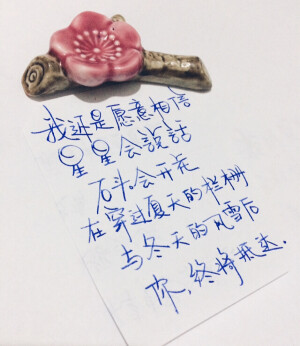 我还是愿意相信
星星会说话
石头会开花
在穿过夏天的栏栅
与冬天的风雪后
你,终将抵达.